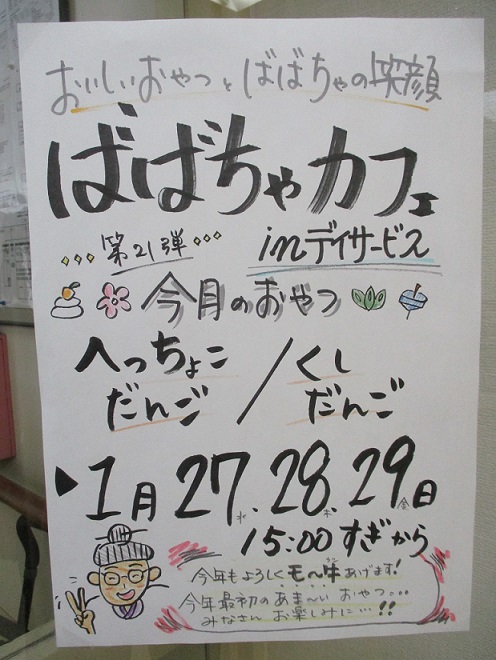 おいしいおやつとばばちゃの笑顔
ばばちゃカフェ
第21弾
inデイサービス
今月のおやつ
へっちょこだんご/くしだんご
▶1月27水.28木.29金日
15:00すぎから
今年もよろしくモ〜牛あげます!
今年最初のあま〜いおやつ...
みなさんお楽しみに...!!